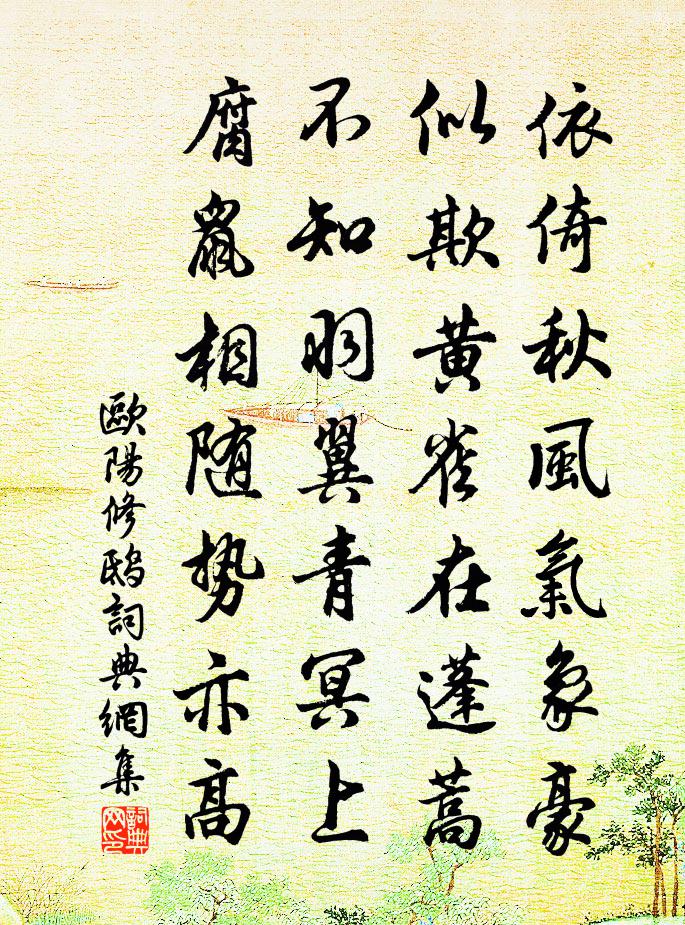 依倚秋風氣象豪
似欺黄雀在蓬蒿
不知羽翼青冥上
腐鼠相随势亦高
歐陽修鴟詞典網集
詞典网印